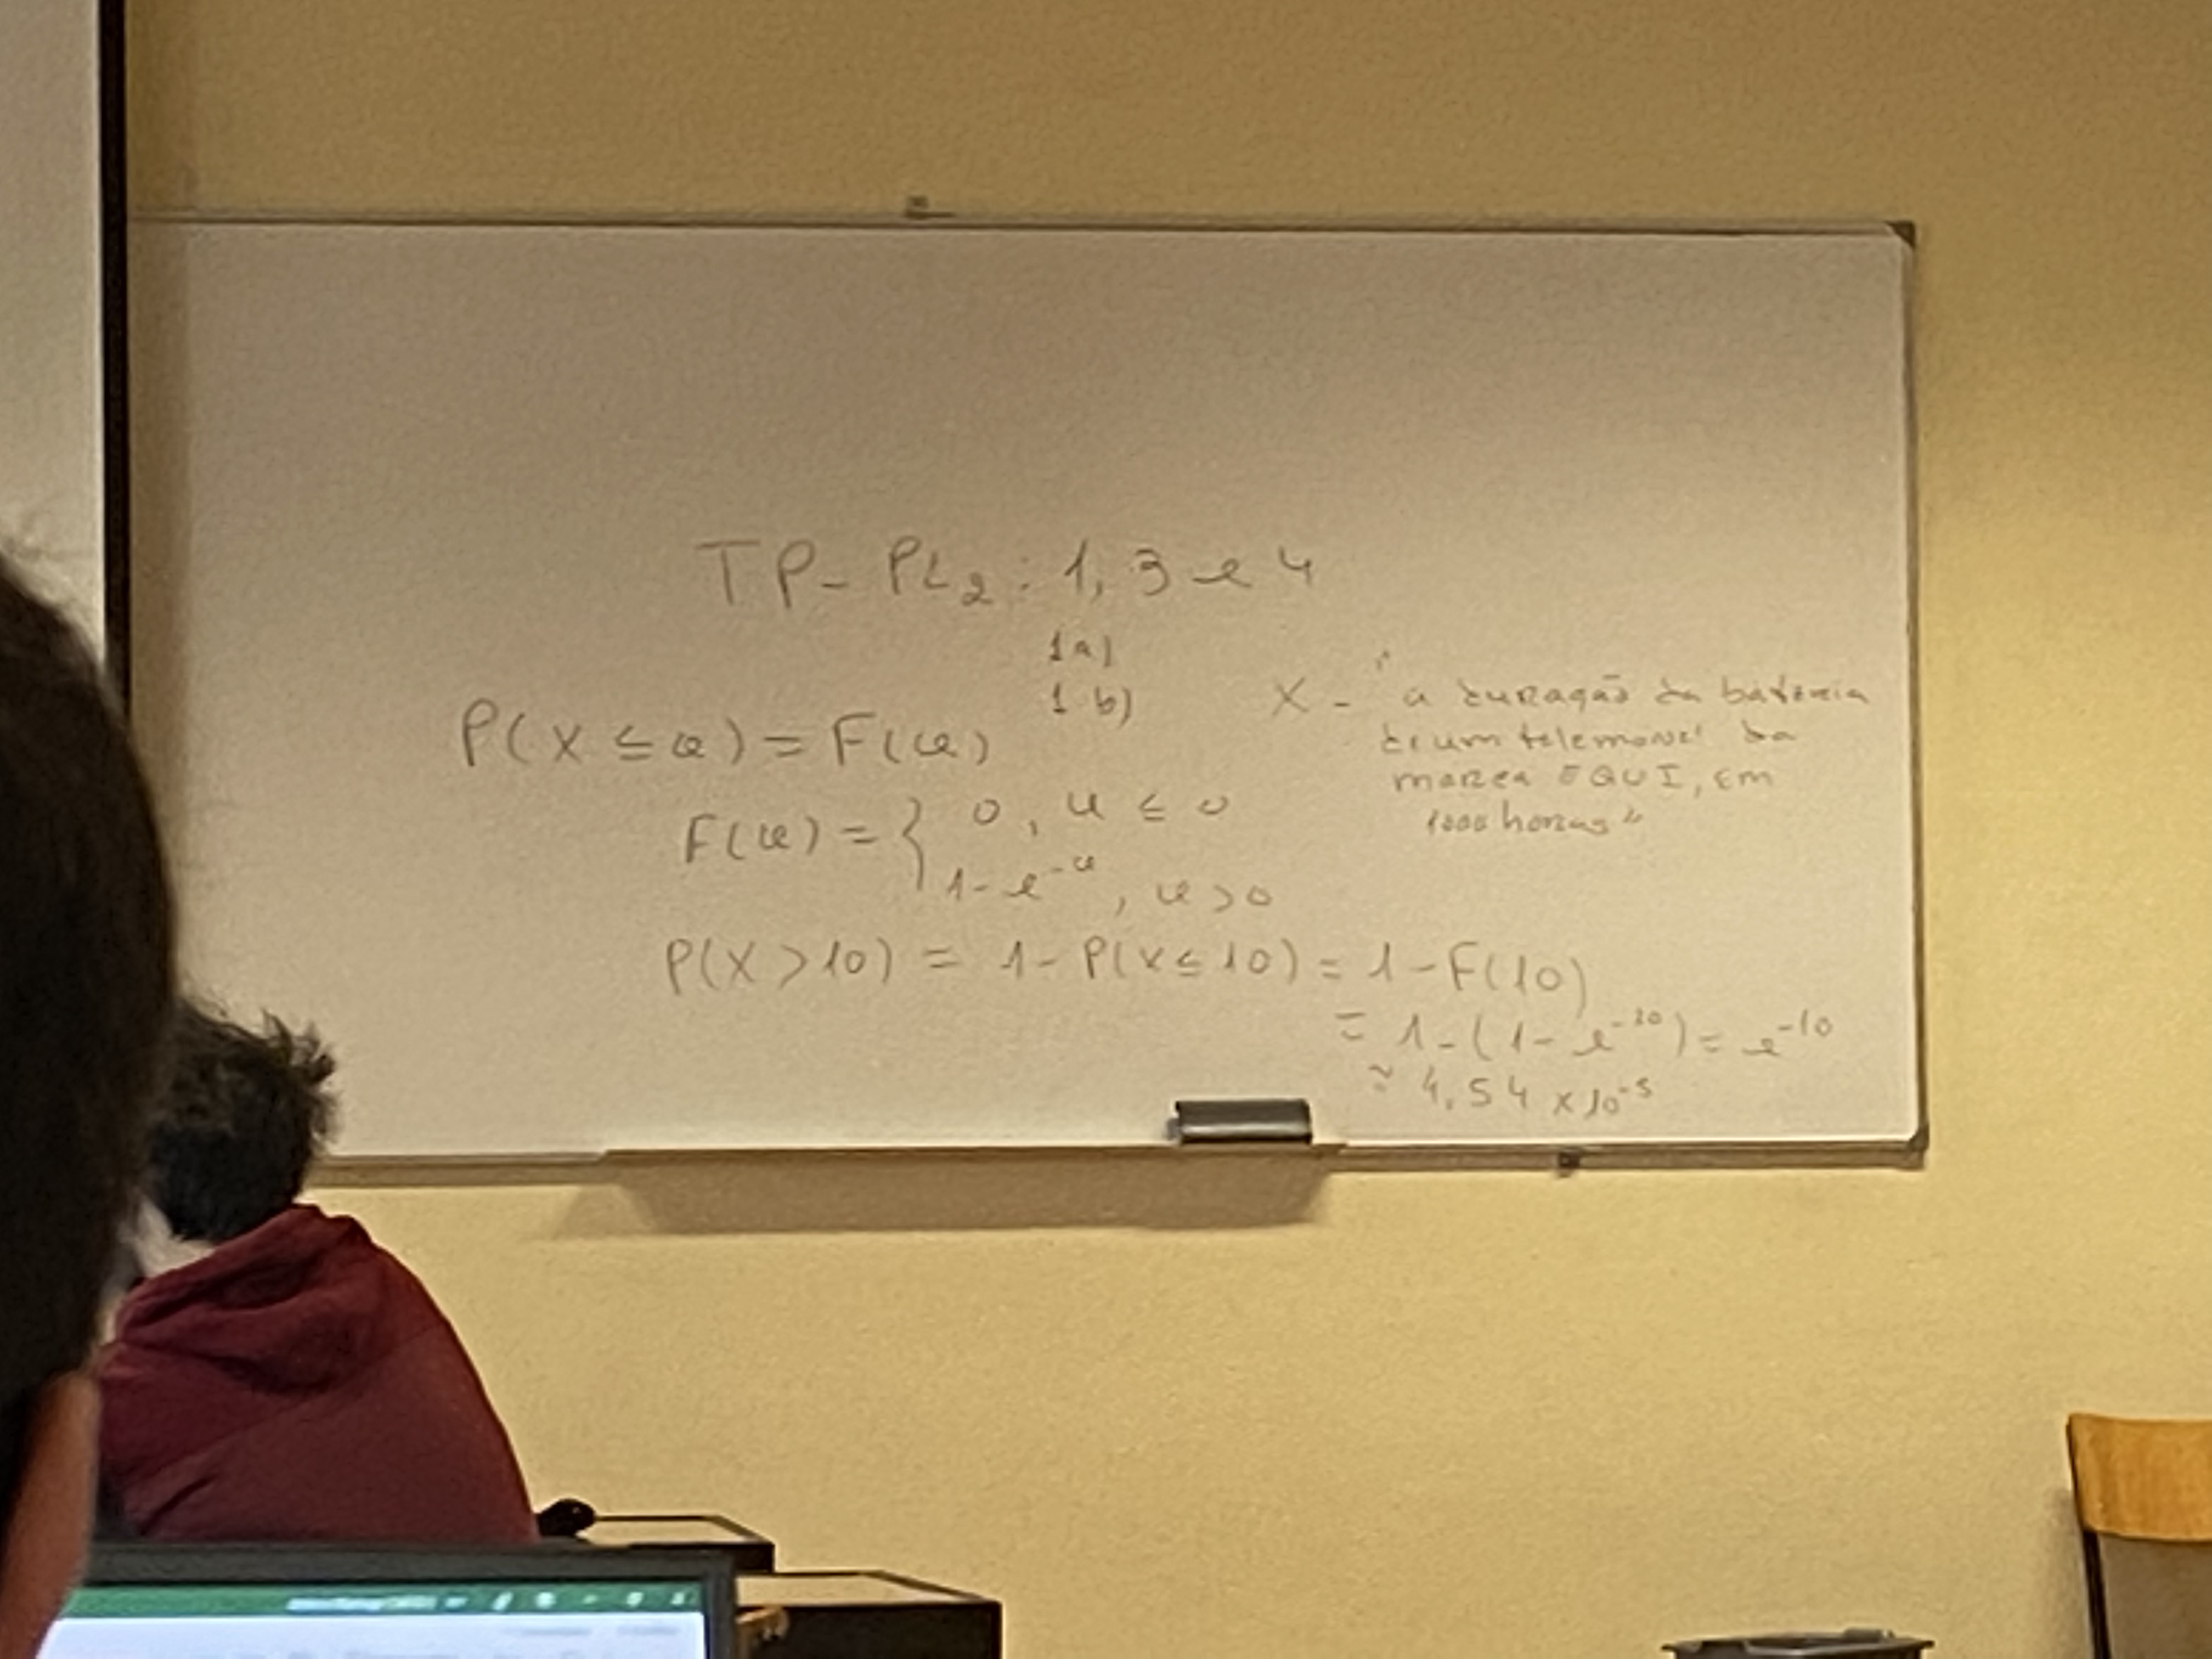 TP - PL2 : 1, 3 e 4
1a)
1 b)
P(X ≤ x) = F(x)
X - "a duração da bateria
de um telemovel da
marca EQUI, em
1000 horas"
F(x) = { 0 , x ≤ 0
1 - e^-x , x > 0
P(X > 10) = 1 - P(X ≤ 10) = 1 - F(10)
= 1 - (1 - e^-10) = e^-10
≈ 4,54 × 10^-5